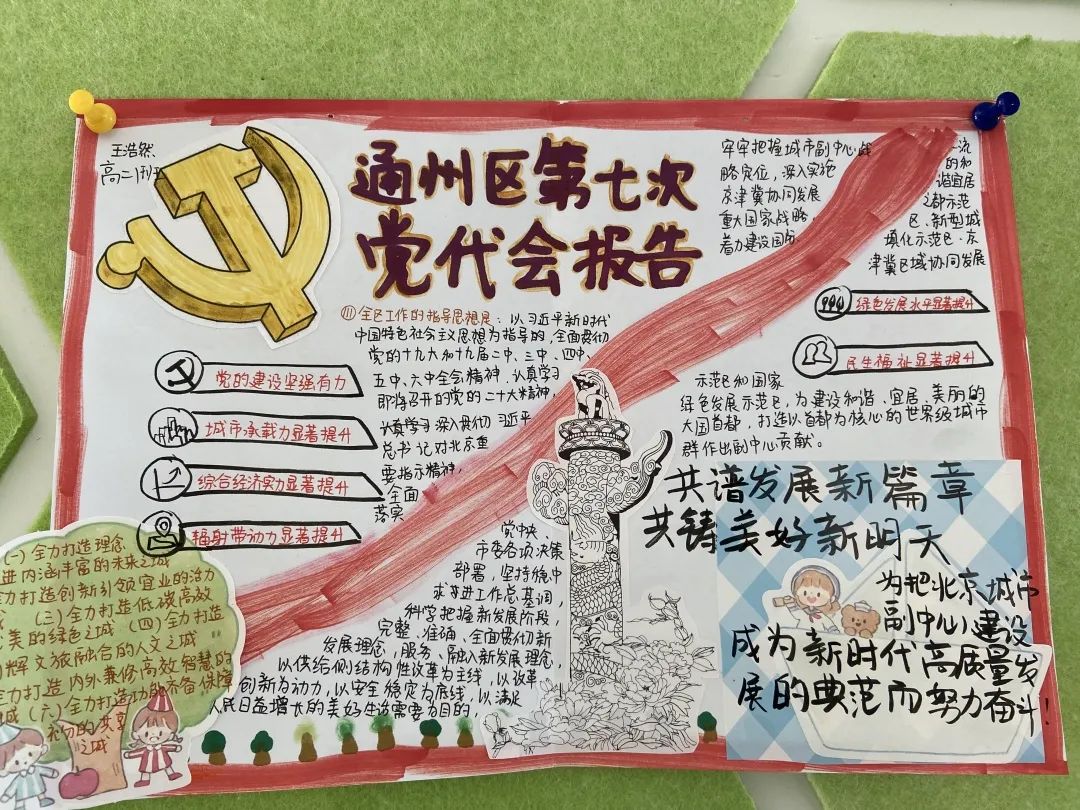 王浩然
高二1班
通州区第七次
党代会报告
牢牢把握城市副中心战
略定位，深入实施
京津冀协同发展
重大国家战略，
着力建设国
一流
的和
谐宜居
之都示范
区、新型城
镇化示范区、京
津冀区域协同发展
绿色发展水平显著提升
民生福祉显著提升
示范区和国家
绿色发展示范区，为建设和谐、宜居、美丽的
大国首都，打造以首都为核心的世界级城市
群作出副中心贡献。
全区工作的指导思想是：以习近平新时代
中国特色社会主义思想为指导的，全面贯彻
党的十九大和十九届二中、三中、四中、
五中、六中全会精神，认真学习
即将召开的党的二十大精神，
认真学习深入贯彻习近平
总书记对北京重
要指示精神，
全面
落实
党中央、
市委各项决策
部署，坚持稳中
求进工作总基调，
科学把握新发展阶段，
完整、准确、全面贯彻新
发展理念，服务、融入新发展理念，
以供给侧结构性改革为主线，以改革
创新为动力，以安全稳定为底线，以满足
人民日益增长的美好生活需要为目的，
党的建设坚强有力
城市承载力显著提升
综合经济实力显著提升
辐射带动力显著提升
（一）全力打造理念
进内涵丰富的未来之城
力打造创新引领宜业的活力
（三）全力打造低碳高效
美的绿色之城（四）全力打造
辉文旅融合的人文之城
全力打造内外兼修高效智慧的
城（六）全力打造功能齐备保障
的共享
之城
共谱发展新篇章
共铸美好新明天
为把北京城市
副中心建设
成为新时代高质量发
展的典范而努力奋斗！